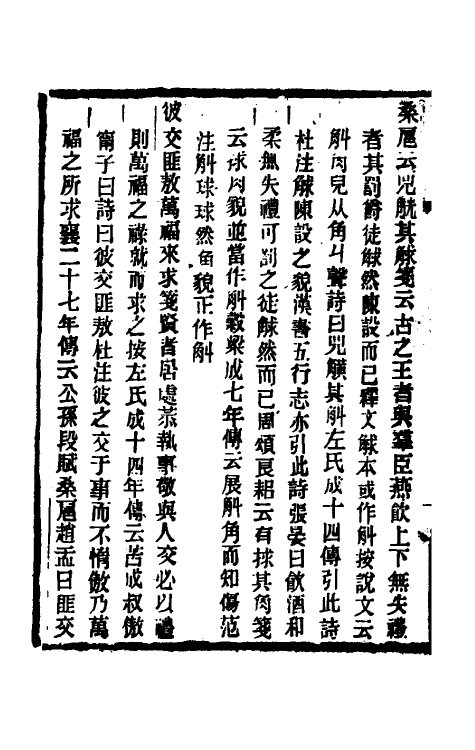 桑扈云兕觥其觩箋云古之王者與羣臣燕飲上下無失禮
者其罰爵徒觩然陳設而已釋文觩本或作斛按說文云
斛角皃从角丩聲詩曰兕觵其斛左氏成十四傳引此詩
杜注觩陳設之貌漢書五行志亦引此詩張晏曰飲酒和
柔無失禮可罰之徒觩然而已周頌良耜云有捄其角箋
云捄角貌並當作斛穀梁成七年傳云展斛角而知傷范
注斛球球然角貌正作斛
彼交匪敖萬福來求箋賢者居處恭執事敬與人交必以禮
則萬福之祿就而求之按左氏成十四年傳云苦成叔傲
甯子曰詩曰彼交匪敖杜注彼之交于事而不惰傲乃萬
福之所求襄二十七年傳云公孫段賦桑扈趙孟曰匪交